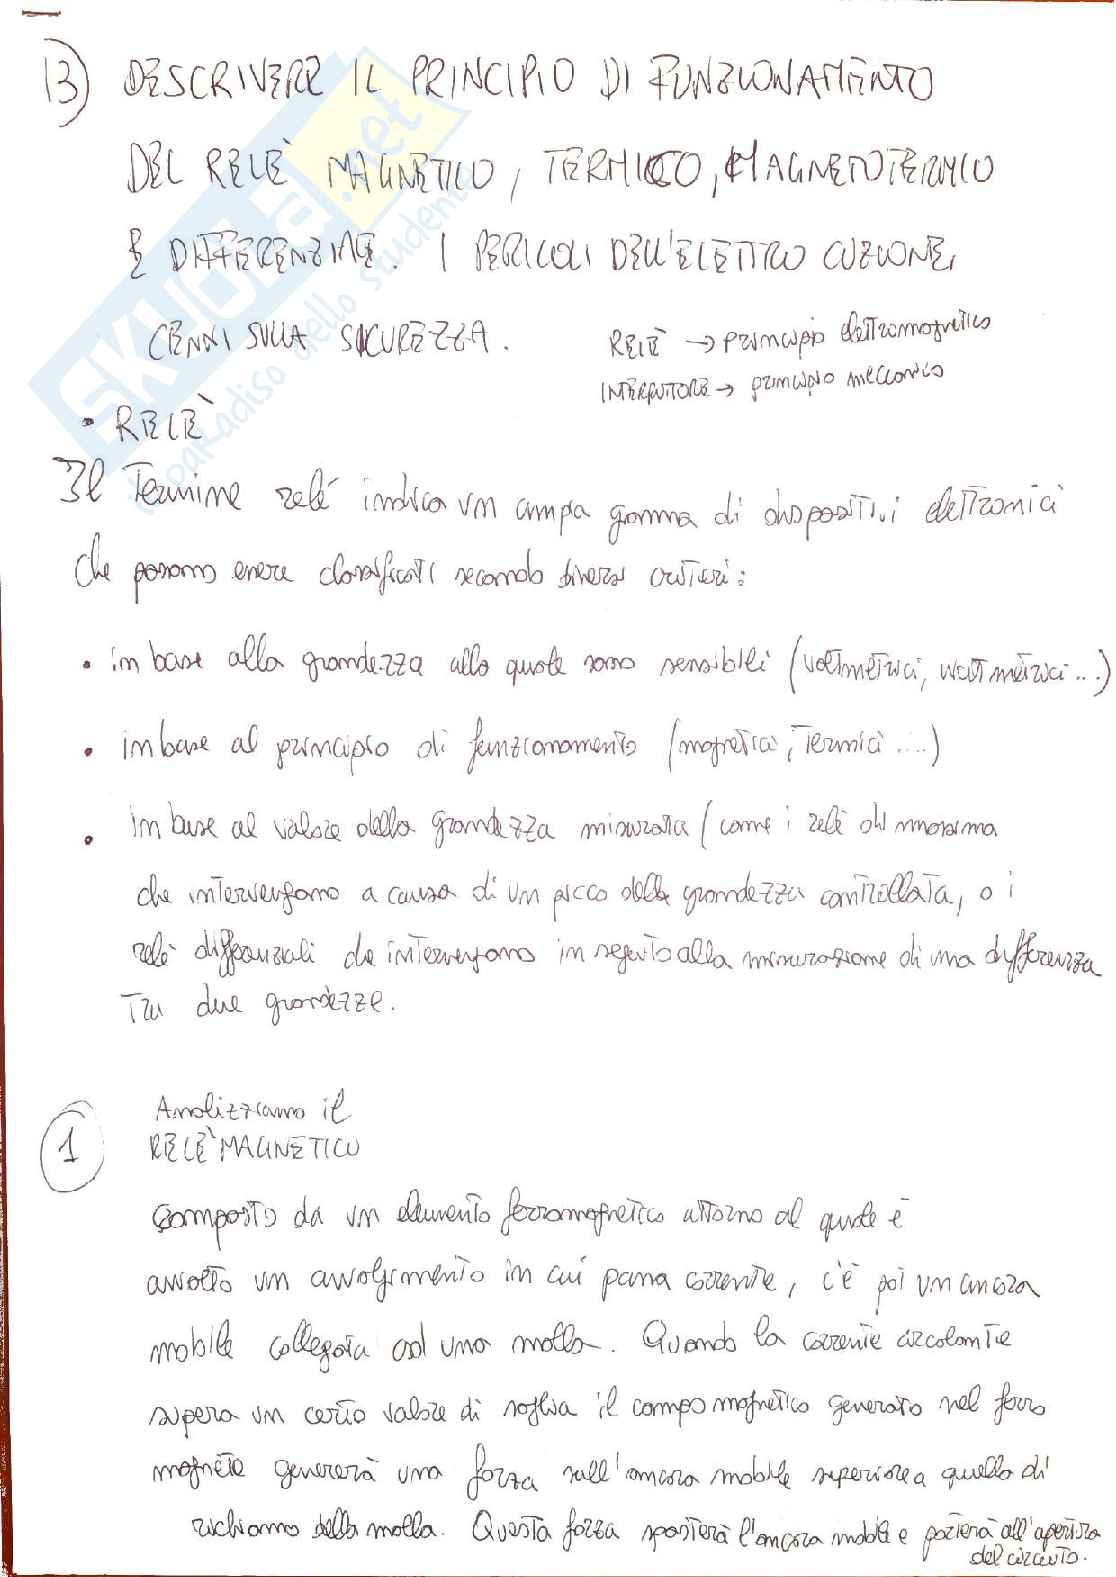 13) DESCRIVERE IL PRINCIPIO DI FUNZIONAMENTO
DEL RELÈ MAGNETICO, TERMICO, MAGNETOTERMICO
E DIFFERENZIALE. I PERICOLI DELL'ELETTROCUZIONE,
CENNI SULLA SICUREZZA.
RELÈ → principio elettromagnetico
INTERRUTTORE → principio meccanico
• RELÈ
Il Termine relé indica un ampa gamma di dispositivi elettronici
che possono essere classificati secondo diversi criteri:
• in base alla grandezza alla quale sono sensibili (voltmetrici, wattmetrici...)
• in base al principio di funzionamento (magnetici, Termici ....)
• in base al valore della grandezza misurata (come i relè di massima
che intervengono a causa di un picco della grandezza controllata, o i
relè differenziali che intervengono in seguito alla misurazione di una differenza
Tra due grandezze.
1 Analizziamo il
RELÈ MAGNETICO
Composto da un elemento ferromagnetico attorno al quale è
avvolto un avvolgimento in cui passa corrente, c'è poi un ancora
mobile collegata ad una molla. Quando la corrente circolante
supera un certo valore di soglia il campo magnetico generato nel ferro
magnete genererà una forza sull'ancora mobile superiore a quella di
richiamo della molla. Questa forza sposterà l'ancora mobile e porterà all'apertura
del circuito.
SKUOLA.net
il paradiso dello studente